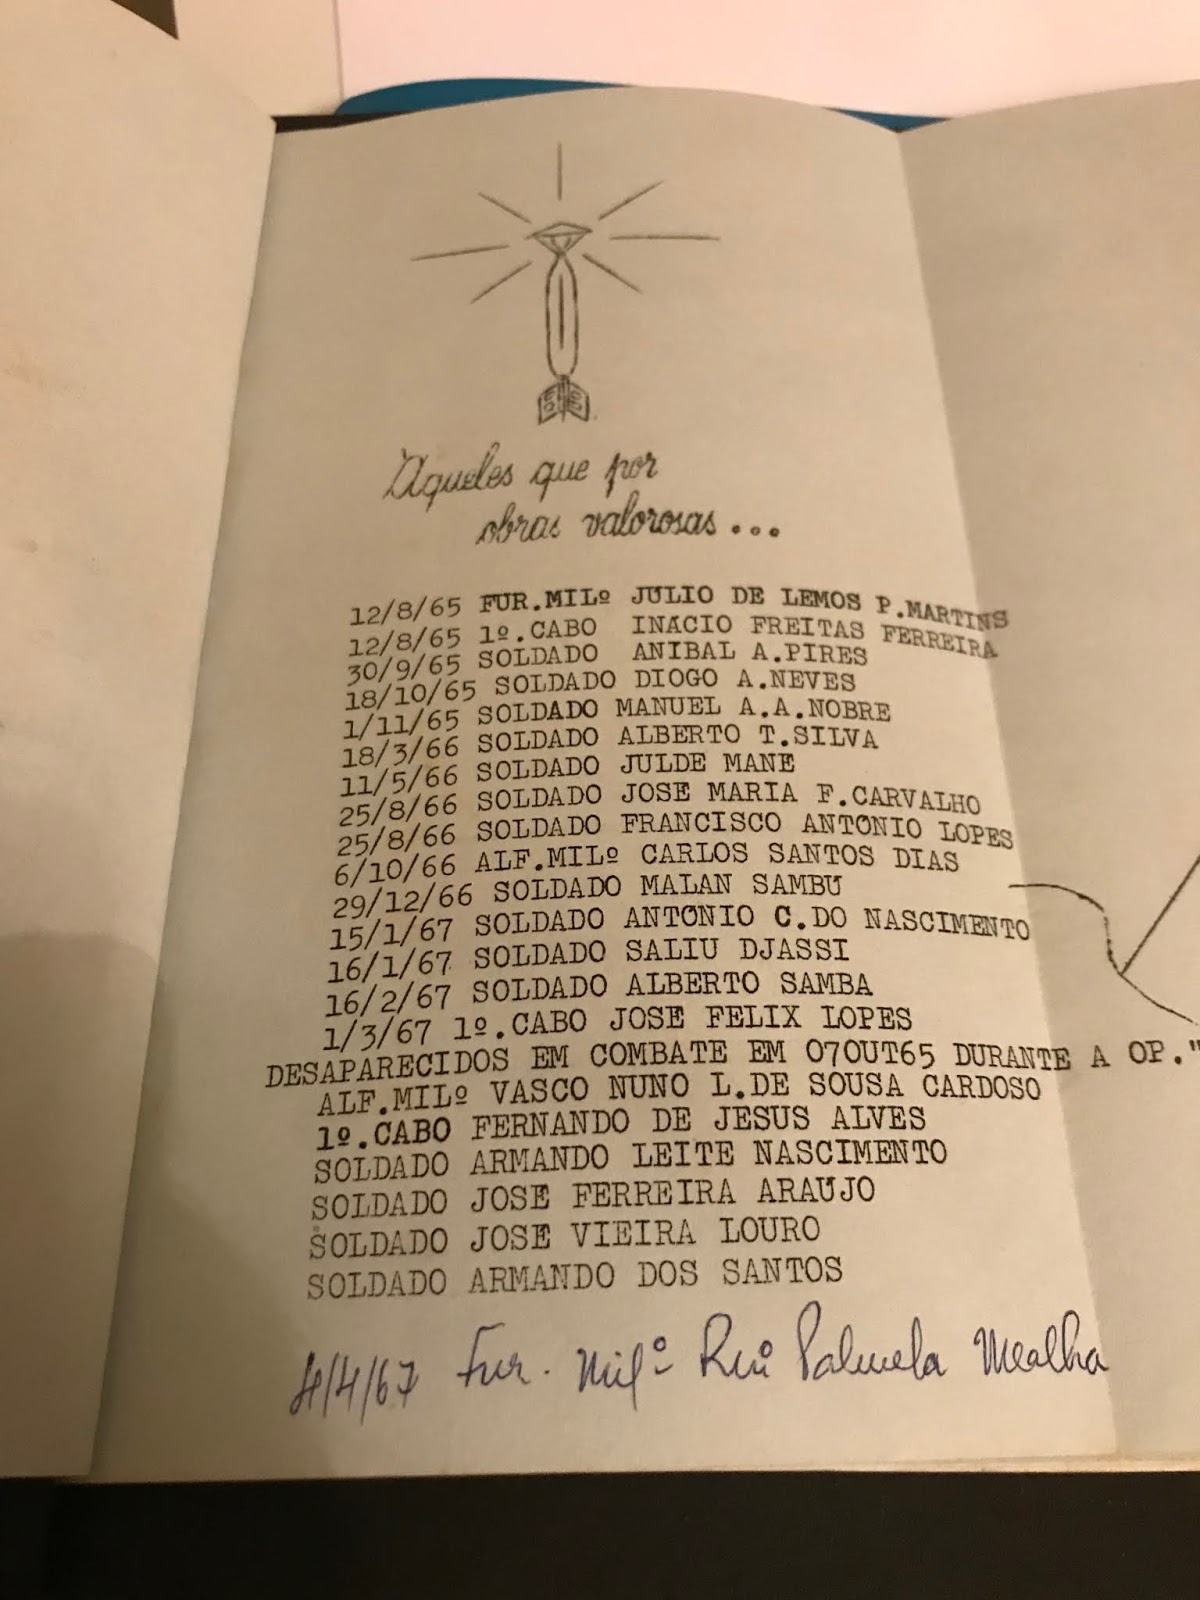 Aqueles que por
obras valorosas...
12/8/65 FUR.MILº JULIO DE LEMOS P.MARTINS
12/8/65 1º.CABO INACIO FREITAS FERREIRA
30/9/65 SOLDADO ANIBAL A.PIRES
18/10/65 SOLDADO DIOGO A.NEVES
1/11/65 SOLDADO MANUEL A.A.NOBRE
18/3/66 SOLDADO ALBERTO T.SILVA
11/5/66 SOLDADO JULDE MANE
25/8/66 SOLDADO JOSE MARIA F.CARVALHO
25/8/66 SOLDADO FRANCISCO ANTONIO LOPES
6/10/66 ALF.MILº CARLOS SANTOS DIAS
29/12/66 SOLDADO MALAN SAMBU
15/1/67 SOLDADO ANTONIO C.DO NASCIMENTO
16/1/67 SOLDADO SALIU DJASSI
16/2/67 SOLDADO ALBERTO SAMBA
1/3/67 1º.CABO JOSE FELIX LOPES
DESAPARECIDOS EM COMBATE EM 07OUT65 DURANTE A OP."
ALF.MILº VASCO NUNO L.DE SOUSA CARDOSO
1º.CABO FERNANDO DE JESUS ALVES
SOLDADO ARMANDO LEITE NASCIMENTO
SOLDADO JOSE FERREIRA ARAUJO
SOLDADO JOSE VIEIRA LOURO
SOLDADO ARMANDO DOS SANTOS
4/4/67 Fur. Milº Rui Palmela Mealha